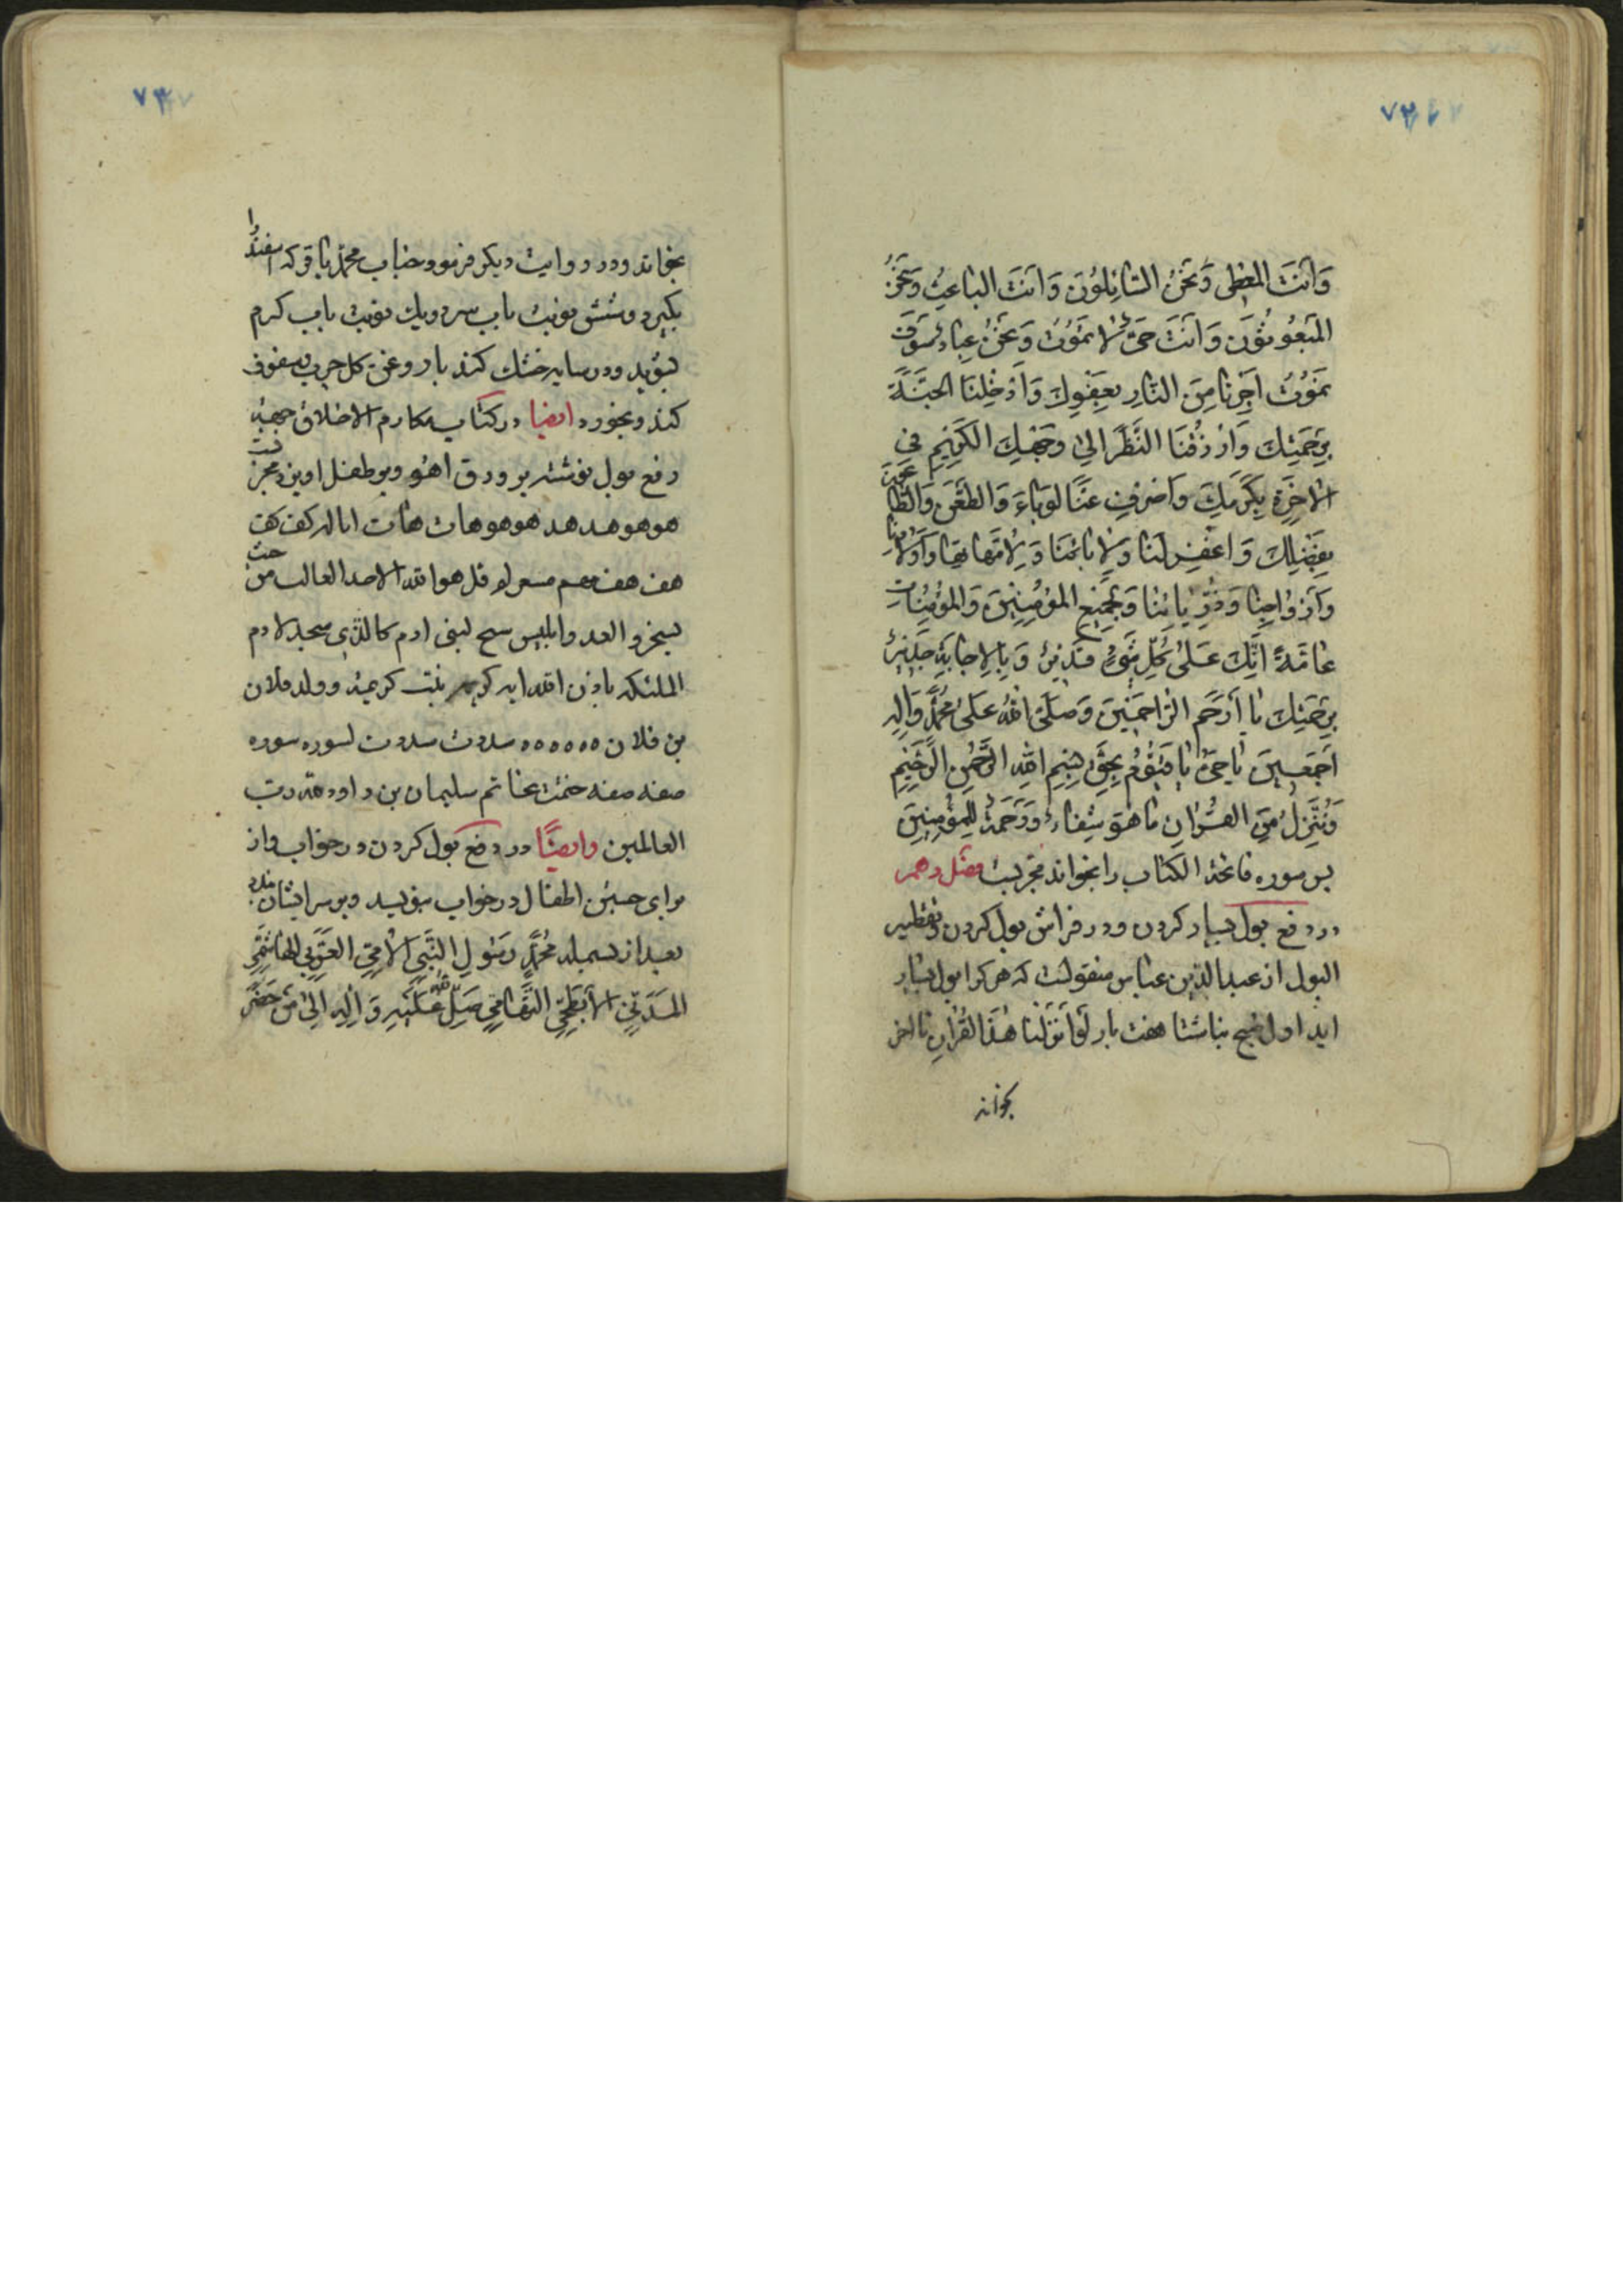 ٧٢
وَاَنْتَ المعطی وَنَحْنُ السّٰائِلُونَ وَ اَنْتَ الباعِثُ وَنَحْنُ
المَبْعُوثُونَ وَ اَنْتَ حَیٌّ لا تَمُوتُ وَ نَحْنُ عِبادٌ سَوْفَ
نَمُوتُ اَجِرْنٰا مِنَ النّٰارِ بِعَفْوِكَ وَ اَدْخِلْنَا الجَنَّةَ
بِرَحْمَتِكَ وَ ارْزُقْنَا النَّظَرَ اِلیٰ وَجْهِكَ الكَرِیْمِ فِی
الاٰخِرَةِ بِكَرَمِكَ وَ اصْرِفْ عَنَّا الوَبٰاءَ وَ الطَّعْنَ وَالطّٰاعُونَ
بِفَضْلِكَ وَ اغْفِرْ لَنٰا وَ لِاٰبائِنَا وَ لِاُمَّهاتِنٰا وَ اَوْلادِنٰا
وَ اَزْوٰاجِنٰا وَ ذُرِّیّٰاتِنٰا وَ لِجَمِیْعِ المُؤْمِنِیْنَ وَ المُؤْمِنٰاتِ
عٰامَّةً اِنَّكَ عَلیٰ كُلِّ شَیْءٍ قَدِیْرٌ وَ بِالاِجٰابَةِ جَدِیْرٌ
بِرَحْمَتِكَ یٰا اَرْحَمَ الرّٰاحِمِیْنَ وَ صَلَّی اللّٰهُ عَلیٰ مُحَمَّدٍ وَ اٰلِهِ
اَجْمَعِیْنَ یٰا حَیُّ یٰا قَیُّوْمُ بِحَقِّ بِسْمِ اللّٰهِ الرَّحْمٰنِ الرَّحِیْمِ
وَ نُنَزِّلُ مِنَ القُرْاٰنِ مٰا هُوَ شِفٰاءٌ وَ رَحْمَةٌ لِلْمُؤْمِنِیْنَ
پس سوره فاتحة الکتاب را بخواند مجربست فصل دهم
در دفع بول بسیار کردن و در فراش بول کردن و تقطیر
البول از عبدالله بن عباس منقولست که هر کرا بول بسیار
اید اول صبح ناشتا هفت بار لَوْ اَنْزَلْنٰا هٰذَا القُرْاٰنَ تا اخر
بخواند
٧٣
بخواند و در روایت دیکر فرمود جناب محمّد باقر که اسفند را
بکیرد و شش نوبت باب سرد و یك نوبت باب کرم
بشوید و در سایه خشك کند با روغن کل چرب سفوف
کند و بخورد ایضا در کتاب مکارم الاخلاق جهة
دفع بول نوشته بر ورق اهو و بر طفل اویزد مجربست
هو هو هد هد هو هو هات هات انا له کف کف
هف هف قل هو الله الاحد الغالب من حیث
یسخر و العد و ابلیس لبنی ادم کالذی سجد لادم
الملئکه باذن الله بنت کریمة و ولد فلان
بن فلان ٥٥٥٥٥٥ سددت سددت لسوره سوره
صفه صفه ختمت بخاتم سلیمان بن داود رب
العالمین و ایضًا در دفع بول کردن در خواب و از
برای جستن اطفال در خواب بنویسد و بر سر ایشان بندد
بعد از بسمله مُحَمَّدٍ رَسُولِ النَّبِیِّ الاُمِّیِّ العَرَبِیِّ الهٰاشِمِیِّ
المَدَنِیِّ الاَبْطَحِیِّ التَّهٰامِیِّ صَلّی اللّٰه عَلَیْهِ وَ اٰلِهِ اِلیٰ مَنْ حَضَرَ